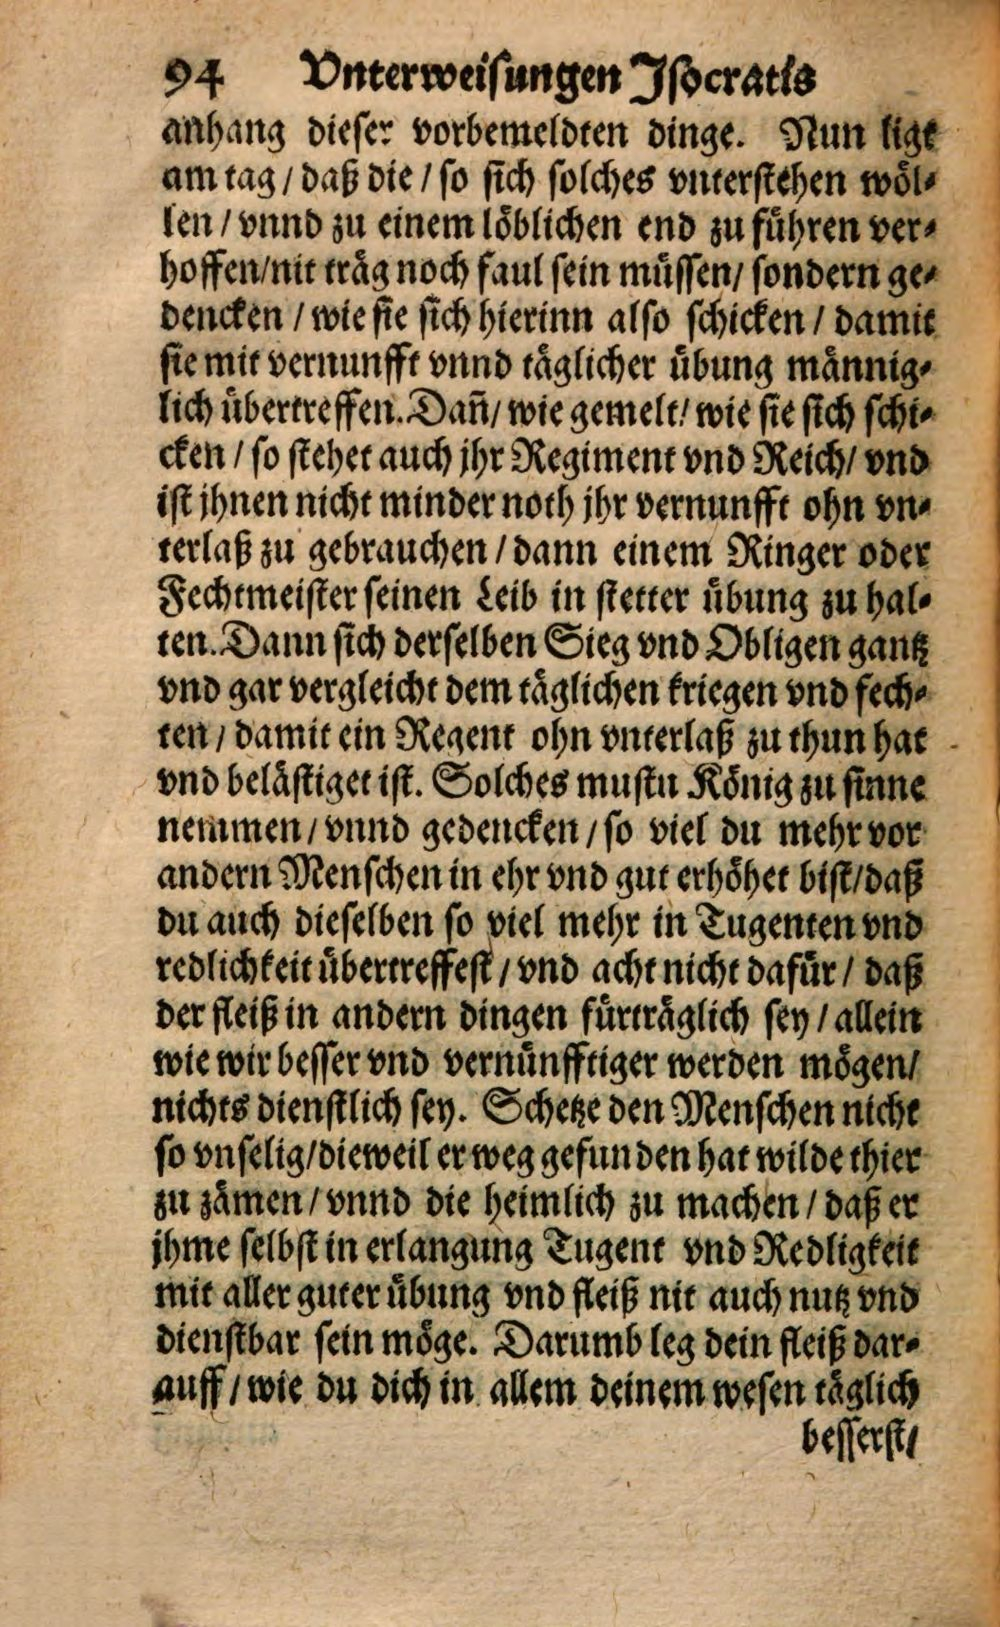 94 Vnterweisungen Jsocratis
anhang dieser vorbemeldten dinge. Nun ligt
am tag / daß die / so sich solches vnterstehen wöl-
len / vnnd zu einem löblichen end zu führen ver-
hoffen/nit träg noch faul sein müssen/ sondern ge-
dencken / wie sie sich hierinn also schicken / damit
sie mit vernunfft vnnd täglicher übung männig-
lich übertreffen. Dañ/ wie gemelt/ wie sie sich schi-
cken / so stehet auch jhr Regiment vnd Reich/ vnd
ist jhnen nicht minder noth jhr vernunfft ohn vn-
terlaß zu gebrauchen / dann einem Ringer oder
Fechtmeister seinen Leib in stetter übung zu hal-
ten. Dann sich derselben Sieg vnd Obligen gantz
vnd gar vergleicht dem täglichen kriegen vnd fech-
ten / damit ein Regent ohn vnterlaß zu thun hat
vnd belästiget ist. Solches mustu König zu sinne
nemmen / vnnd gedencken / so viel du mehr vor
andern Menschen in ehr vnd gut erhöhet bist/daß
du auch dieselben so viel mehr in Tugenten vnd
redlichkeit übertreffest / vnd acht nicht dafür / daß
der fleiß in andern dingen fürträglich sey / allein
wie wir besser vnd vernünfftiger werden mögen/
nichts dienstlich sey. Schetze den Menschen nicht
so vnselig/dieweil er weg gefunden hat wilde thier
zu zämen / vnnd die heimlich zu machen / daß er
jhme selbst in erlangung Tugent vnd Redligkeit
mit aller guter übung vnd fleiß nit auch nutz vnd
dienstbar sein möge. Darumb leg dein fleiß dar-
auff / wie du dich in allem deinem wesen täglich
besserst/